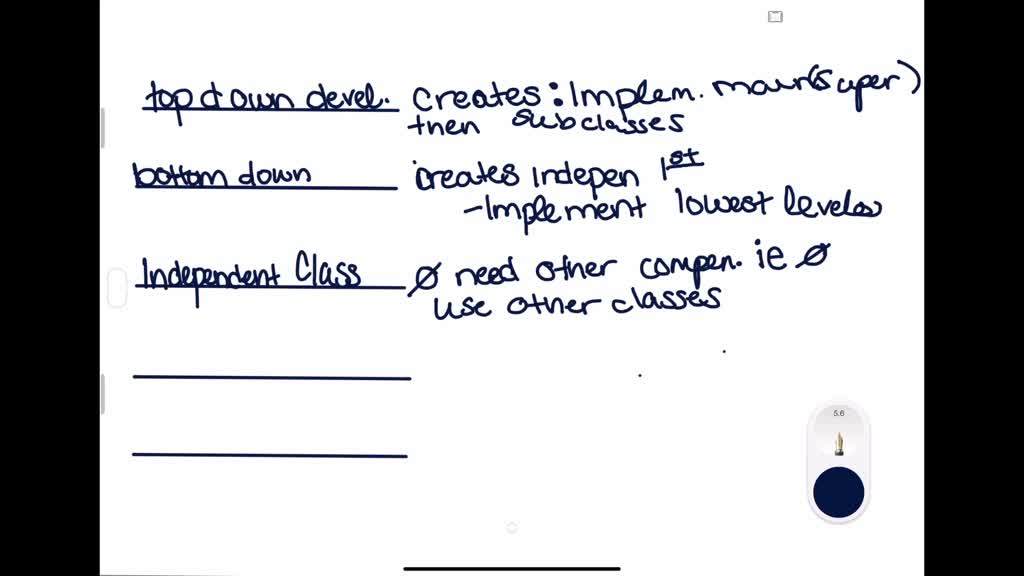 top down devel. creates: Implem. main (super)
then subclasses
bottom down creates indepen 1st
- Implement lowest levels
Independent Class ∅ need other compon. ie ∅
use other classes
5.6